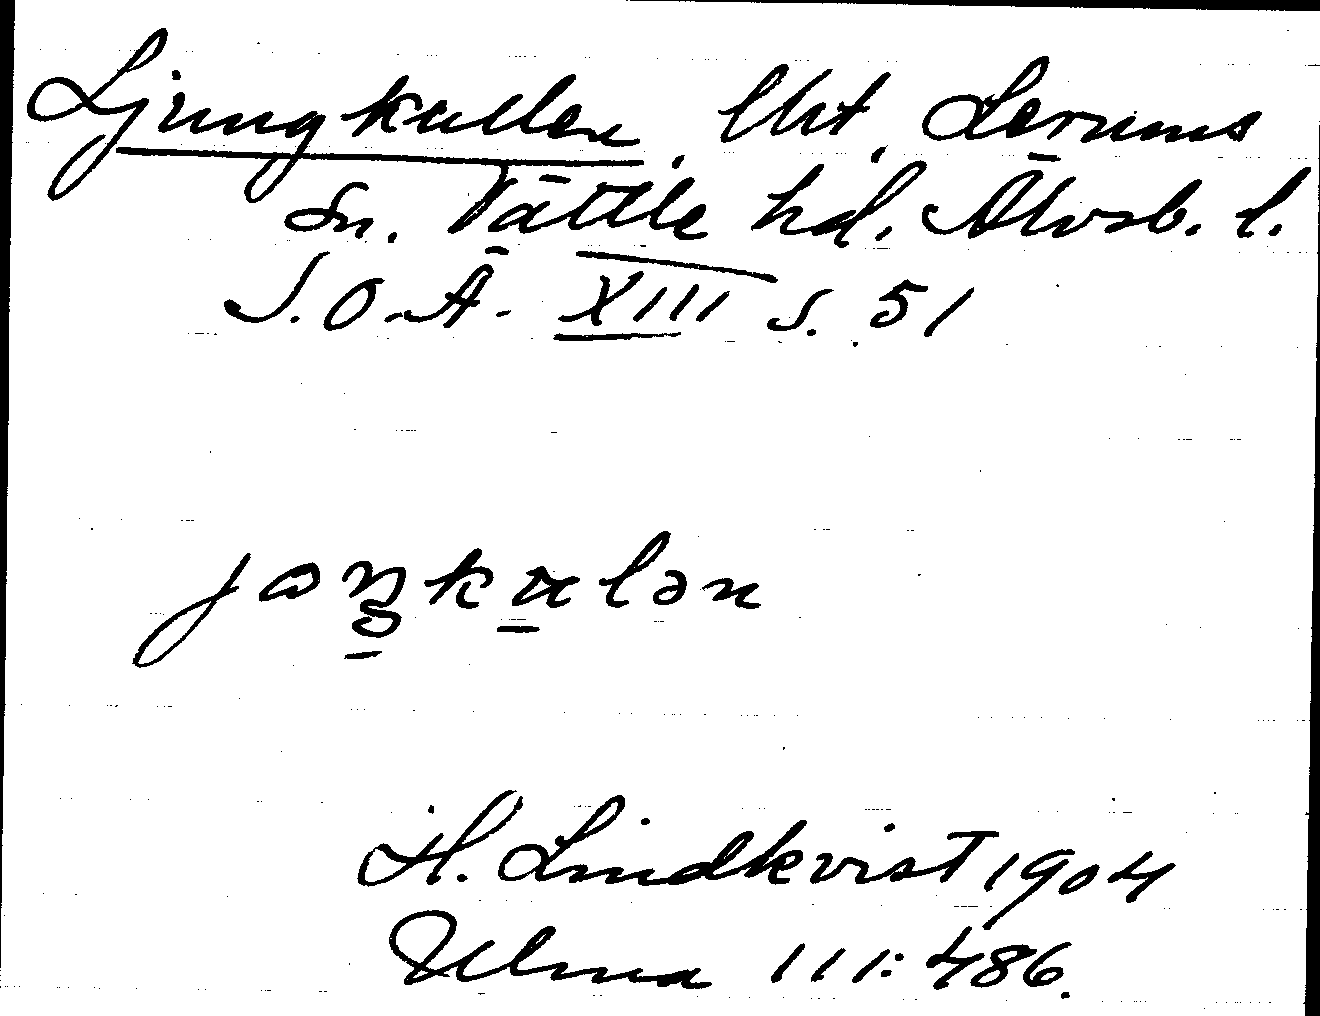 Ljungkullen, Utt, Lerums
sn. Vättle hd. Älvsb. l.
S.O.Ä. XIII s. 51
jɷŋkalən
H. Lindkvist 1904
Ulma 111:486.